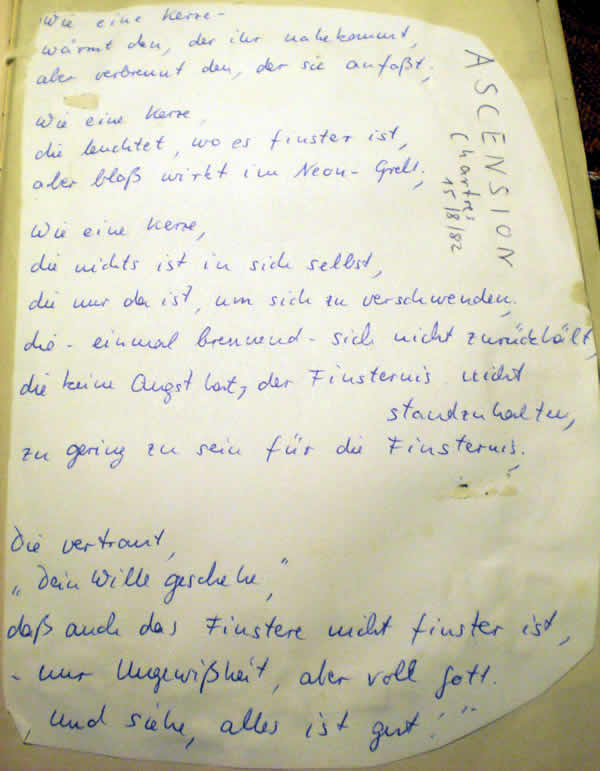 Wie eine Kerze -
wärmt den, der ihr nahekommt,
aber verbrennt den, der sie anfaßt;
Wie eine Kerze,
die leuchtet, wo es finster ist,
aber bloß wirkt im Neon-Grell;
Wie eine Kerze,
die nichts ist in sich selbst,
die nur da ist, um sich zu verschwenden,
die - einmal brennend - sich nicht zurückhält,
die keine Angst hat, der Finsternis nicht
standzuhalten,
zu gering zu sein für die Finsternis.
Die vertraut,
„Dein Wille geschehe,“
daß auch das Finstere nicht finster ist,
- nur Ungewißheit, aber voll Gott.
„Und siehe, alles ist gut!“
ASCENSION
Chartres
15/8/82